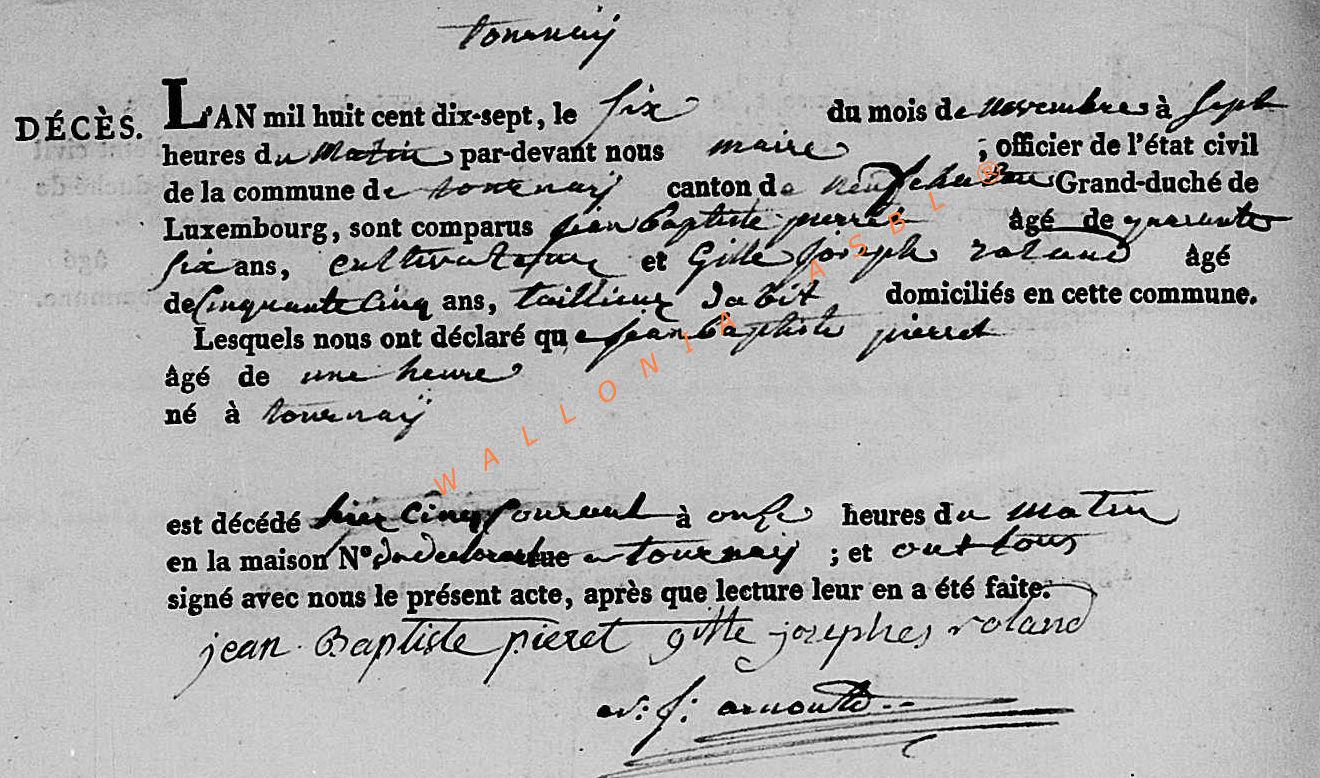 tournaij
DÉCÈS. L'AN mil huit cent dix-sept, le six du mois de novembre à sept
heures du matin par-devant nous maire ; officier de l'état civil
de la commune de tournaij canton de neufchateau Grand-duché de
Luxembourg, sont comparus jean baptiste pierret âgé de quarante
six ans, cultivateur et Gille joseph roland âgé
de cinquante cinq ans, tailleur dabit domiciliés en cette commune.
Lesquels nous ont déclaré que jean baptiste pierret
âgé de une heure
né à tournaij
est décédé hier cinq courant à onze heures du matin
en la maison N° du declarant rue a tournaij ; et ont tous
signé avec nous le présent acte, après que lecture leur en a été faite.
jean Baptiste pieret gille josephe roland
f: arnould
WALLONIA ASBL ®